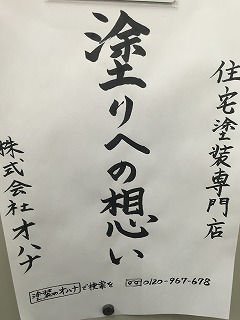 住宅塗装専門店
塗りへの想い
株式会社オハナ
塗装のオハナで検索を
0120-967-678